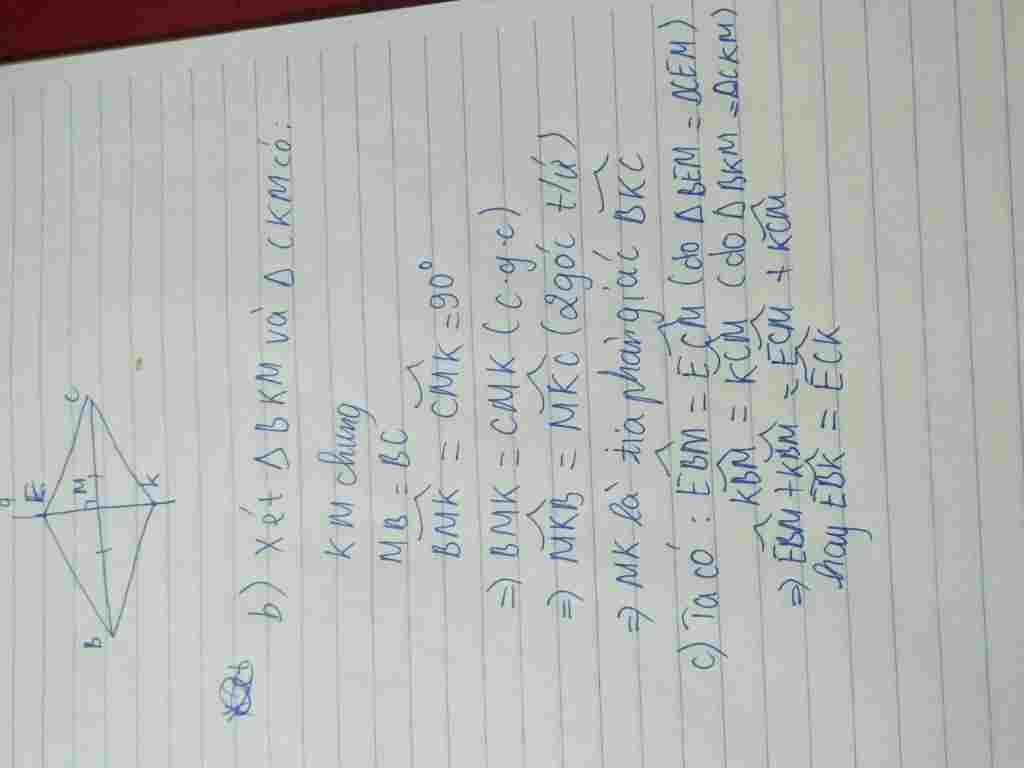 d
E
B
M
C
K
b) Xét Δ BKM và Δ CKM có:
KM chung
MB = BC
BMK = CMK = 90°
=) BMK = CMK (c.g.c)
=) MKB = MKC (2 góc t/ứ)
=) MK là tia phân giác BKC
c) Ta có: EBM = ECM (do Δ BEM = ΔCEM)
KBM = KCM (do Δ BKM = ΔCKM)
=) EBM + KBM = ECM + KCM
hay EBK = ECK